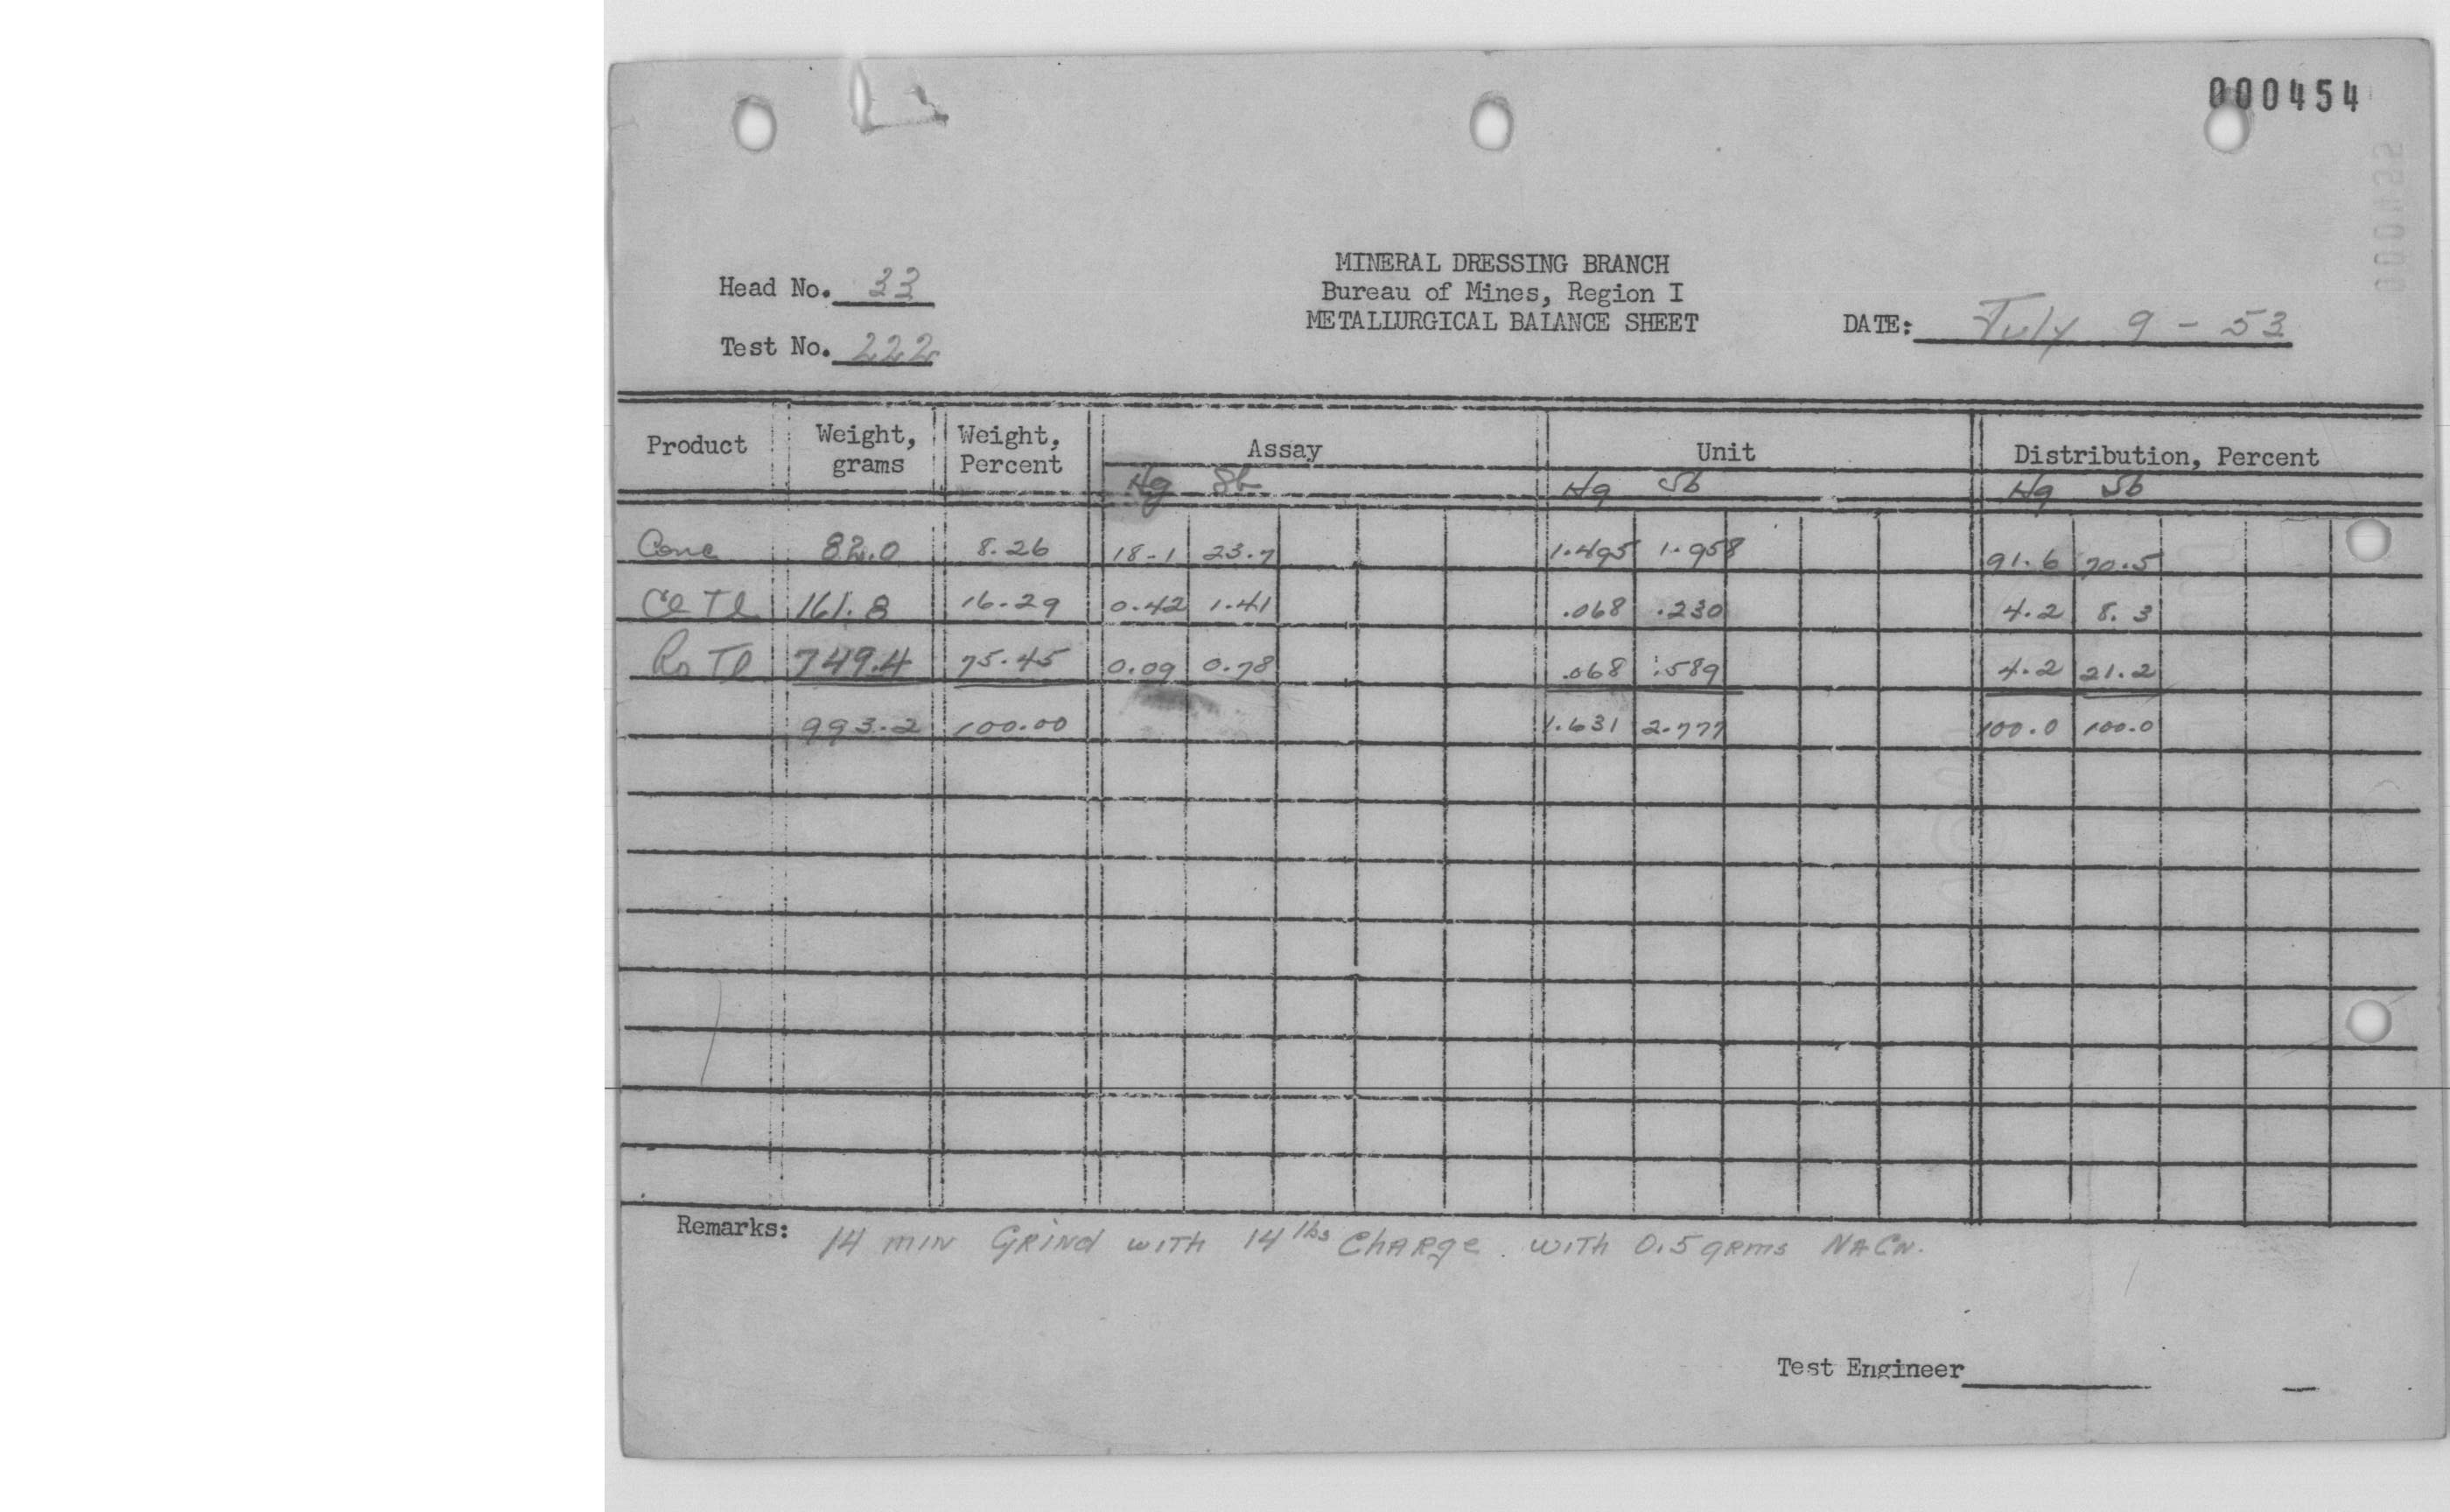 000454
MINERAL DRESSING BRANCH
Head No. 33
Bureau of Mines, Region I
METALLURGICAL BALANCE SHEET
DATE: July 9 - 53
Test No. 222
Product Weight, grams Weight, Percent Assay Unit Distribution, Percent
Hg Sb Hg Sb Hg Sb
Conc 82.0 8.26 18-1 23.7 1.495 1.958 91.6 70.5
Cl Tl 161.8 16.29 0.42 1.41 .068 .230 4.2 8.3
Ro Tl 749.4 75.45 0.09 0.78 .068 .589 4.2 21.2
993.2 100.00 1.631 2.777 100.0 100.0
Remarks: 14 min Grind with 14 lbs Charge. with 0.5 grms NaCn.
Test Engineer